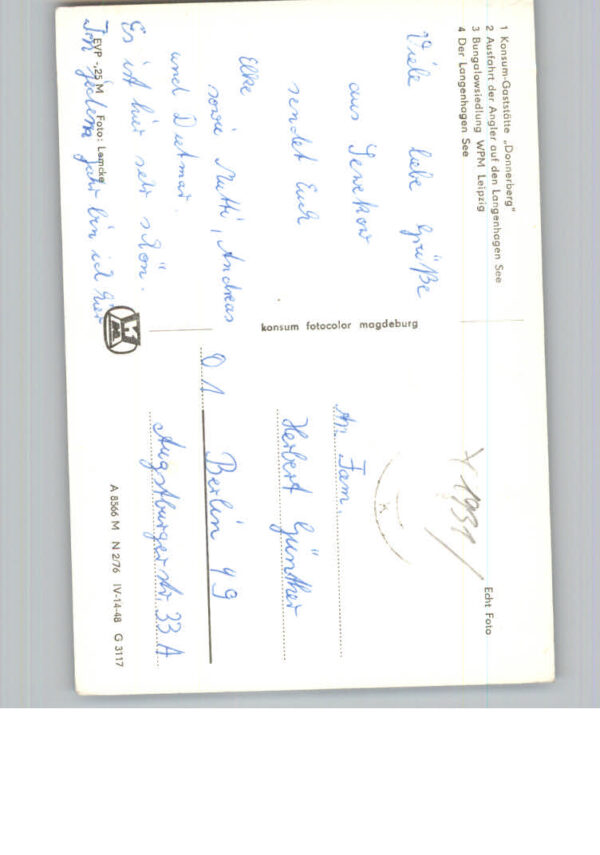 1 Konsum-Gaststätte „Donnerberg"
2 Ausfahrt der Angler auf den Langenhagen See
3 Bungalowsiedlung WPM Leipzig
4 Der Langenhagen See
Viele liebe Grüße
aus
sendet Euch
Elke
sowie Mutti, Andreas
und Dietmar.
Es ist hier sehr schön.
In jedem Jahr bin ich hier
EVP -,25 M Foto: Lemcke
konsum fotocolor magdeburg
Echt Foto
An Fam.
Herbert Günther
O 1 Berlin 49
Augsburgerstr. 33 A
A 8566 M N 2/76 IV-14-48 G 3117